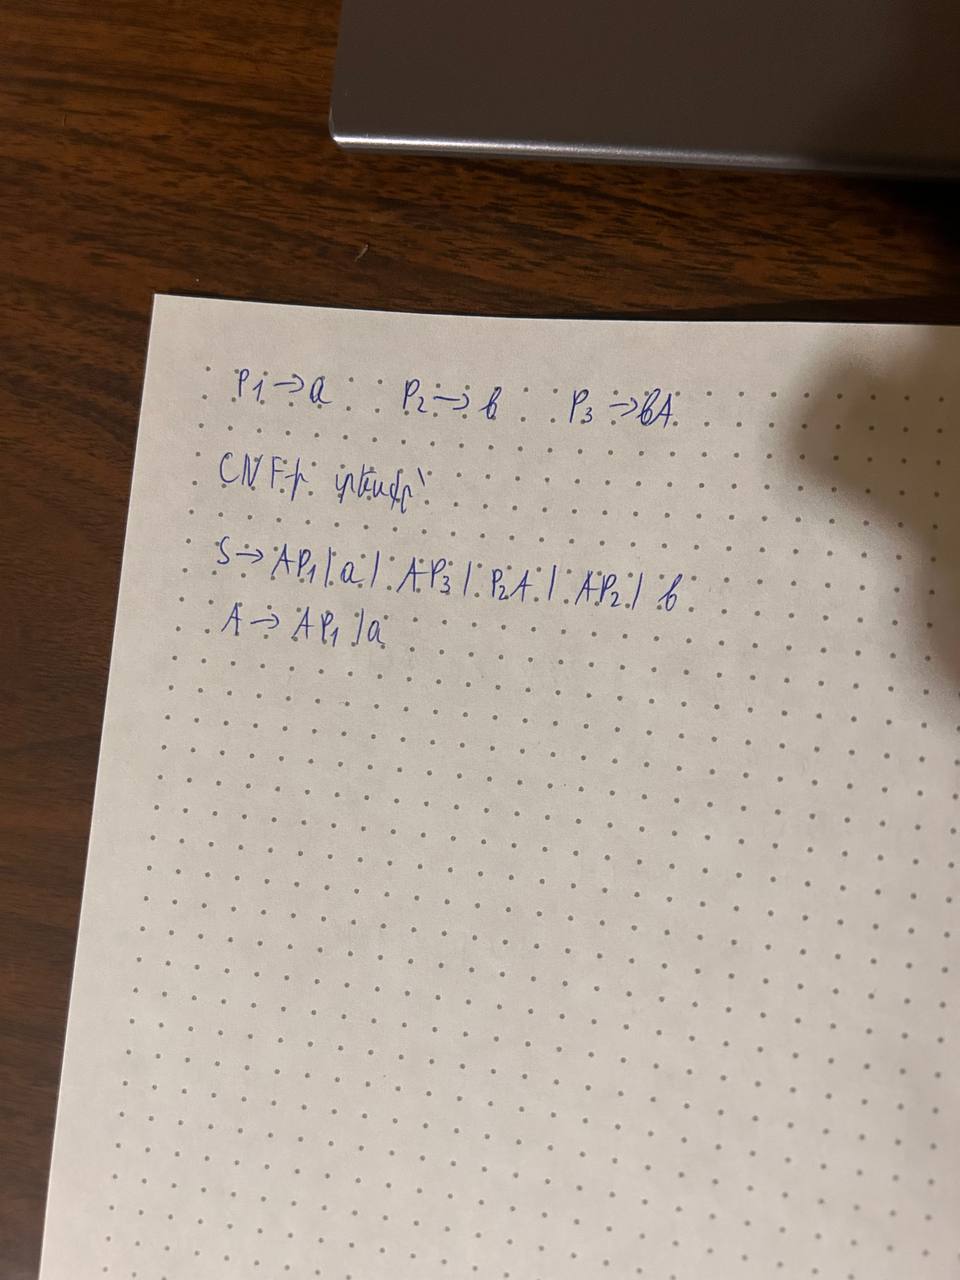 P₁ → a P₂ → b P₃ → bA
CNF-ի տեսքը՝
S → AP₁ | a | AP₃ | P₂A | AP₂ | b
A → AP₁ | a